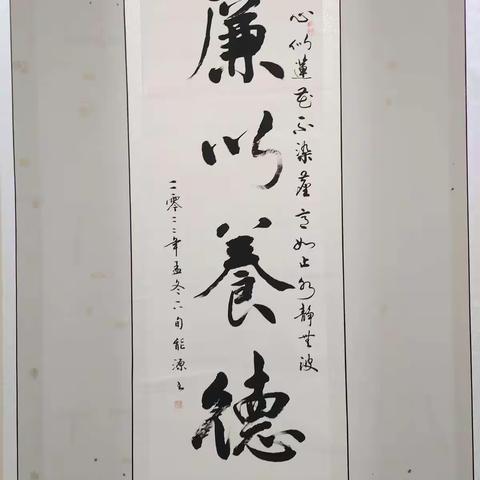 心似蓮花不染塵意如止水靜無波
廉以養德
二零二二年孟冬六旬能源